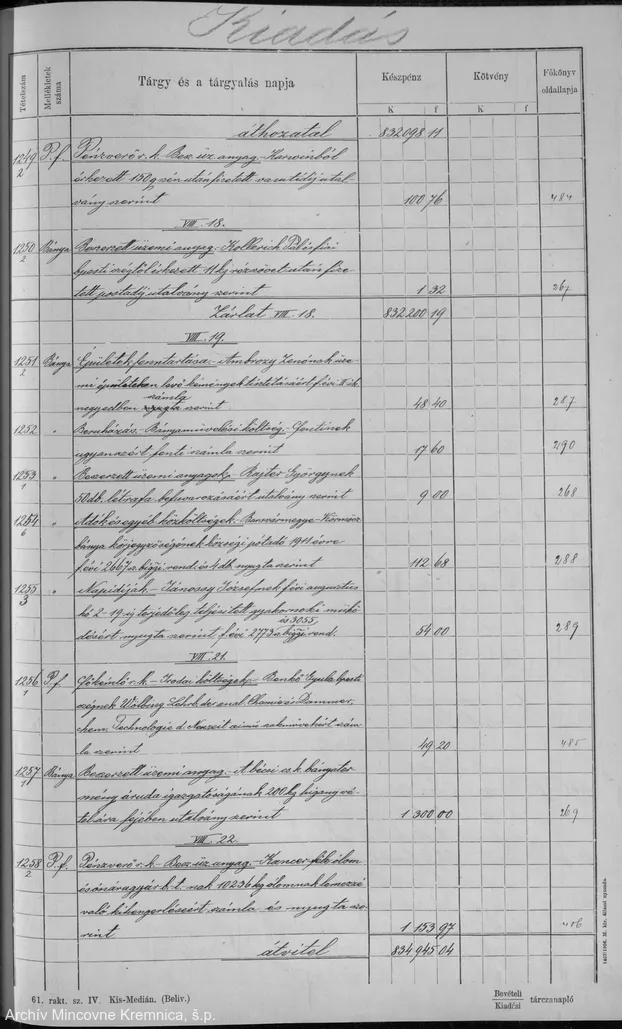 Kiadás
Tételszám
Mellékletek száma
Tárgy és a tárgyalás napja
Készpénz
Kötvény
Főkönyv oldallapja
K f K f
áthozatal 832098 11
1249 2 P.f. Pénzverő r. k. Bes. üz. anyag.
érkezett után fizetett vasutidíj utal-
vány szerint 100 76 484
VIII 18.
1250 2 Bánya Beszerzett üzemi anyag. - Pál és fiai
bpesti cégtől érkezett 11 kg után fize-
tett postadíj utalvány szerint 1 32 267
Zárlat VIII 18. 832200 19
VIII 19.
1251 2 Bánya Épületek fenntartása. - Ambrozy üze-
mi épületekben levő kémények tisztításáért f. évi
számla
negyedben szerint 48 40 287
1252 " Beruházás. - Bányaművelési költség. - Fentinek
ugyanezért fenti számla szerint 17 60 290
1253 1 " Beszerzett üzemi anyagok. - Rajter Györgynek
50 db. létrafa utalvány szerint 9 00 268
1254 6 " Adók és egyéb közköltségek. - Barsvármegye - Körmöcz-
bánya községi pótadó 1911 évre
f. évi 2667 sz. bizgi. rend. és 4 db. nyugta szerint 112 68 288
1255 3 " Napidíjak. - Jánossy Józsefnek f. évi augusztus
hó 2-19-ig terjedőleg teljesített gyakornoki műkö-
és 3055
désért, nyugta szerint f. évi 2773 sz. bizgi rend. 54 00 289
VIII 21.
1256 1 P.f. Főkémlő r. k. - Irodai költségek. - Benkő Gyula bpesti
cégnek Wölbing Lehrb. der anal. Chemie és Dammer,
chem. Technologie d. Neuzeit című szakművekért szám-
la szerint 49 20 485
1257 1 Bánya Beszerzett üzemi anyag. - A bécsi cs. k. bányater-
mény áruda igazgatóságának 200 kg higany vé-
telára fejében utalvány szerint 1 300 00 269
VIII 22.
1258 2 P.f. Pénzverő r. k. - Bes. üz. anyag. - ólom
és ónárugyár b. t. nak 10236 kg ólomnak lemezzé
való kihengerléseért, számla és nyugta sze-
rint 1 153 97 486
átvitel 834945 04
61. rakt. sz. IV. Kis-Medián. (Beliv.)
Bevételi
Kiadási
tárczanapló
M. kir. állami nyomda.
Archív Mincovne Kremnica, š.p.